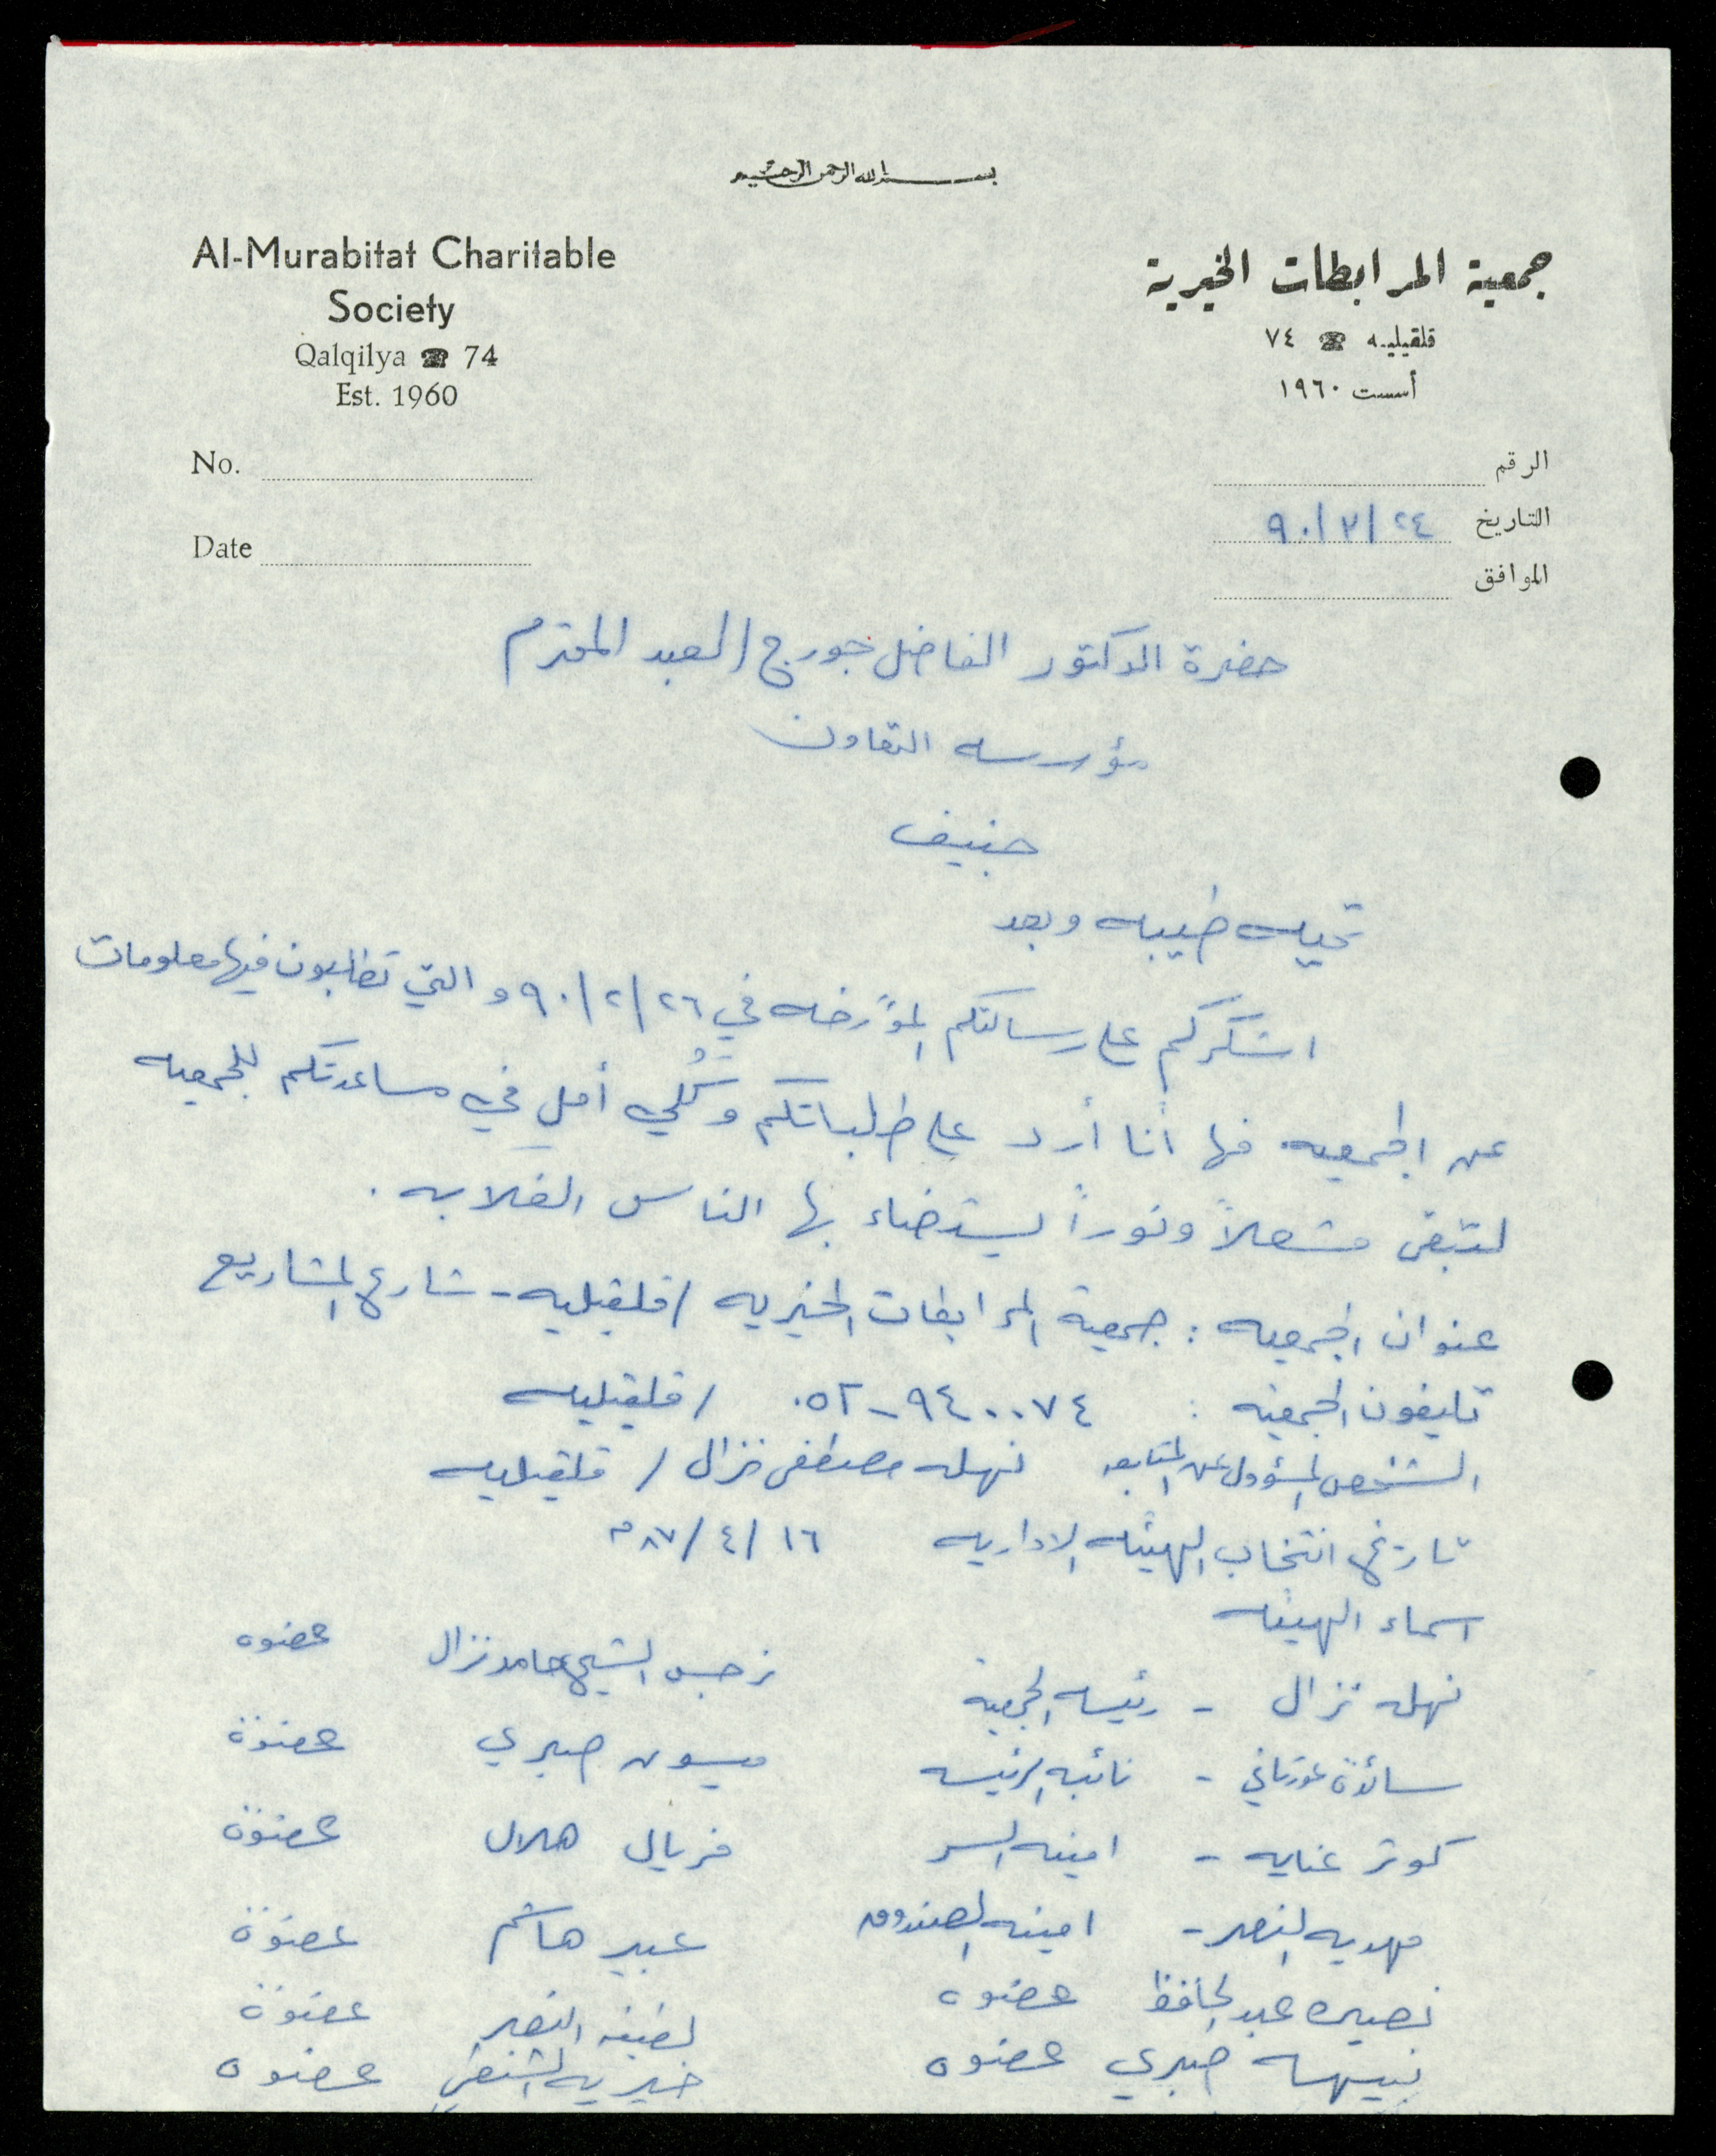 بسم الله الرحمن الرحيم
Al-Murabitat Charitable
Society
Qalqilya ☎ 74
Est. 1960
No.
Date
جمعية المرابطات الخيرية
قلقيليه ☎ ٧٤
أسست ١٩٦٠
الرقم
التاريخ ٢٤/٣/٩٠
الموافق
حضرة الدكتور الفاضل جورج العبد المحترم
مؤسسه التعاون
جنيف
تحيه طيبه وبعد
اشكركم على رسالتكم المؤرخه في ٢٦/٢/٩٠ و التي تطلبون فيها معلومات
عن الجمعيه فها أنا أرد على طلباتكم وكُلي أمل في مساعدتكم للجمعيه
لتبقى مشعلاً ونوراً يستضاء بها الناس الغلابه .
عنوان الجمعيه : جمعية المرابطات الخيريه / قلقيليه - شارع المشاريع
تليفون الجمعيه : ٩٤٠٠٧٤-٠٥٢ / قلقيليه
الشخص المسؤول عن المتابعه نهله مصطفى نزال / قلقيليه
تاريخ انتخاب الهيئه الاداريه ١٦/٤/٨٧م
اسماء الهيئه
نهله نزال - رئيسه الجمعية نرجس الشيخ حامد نزال عضوه
سائدة - نائبه الرئيسه ميسون صبري عضوة
كوثر عنايه - امينه السر فريال هلال عضوة
مهديه النصر - امينه الصندوق عبير هاشم عضوة
نصيره عبد الحافظ عضوه لطيفه النصر عضوة
نبيهه صبري عضوه خيريه الشنطي عضوه